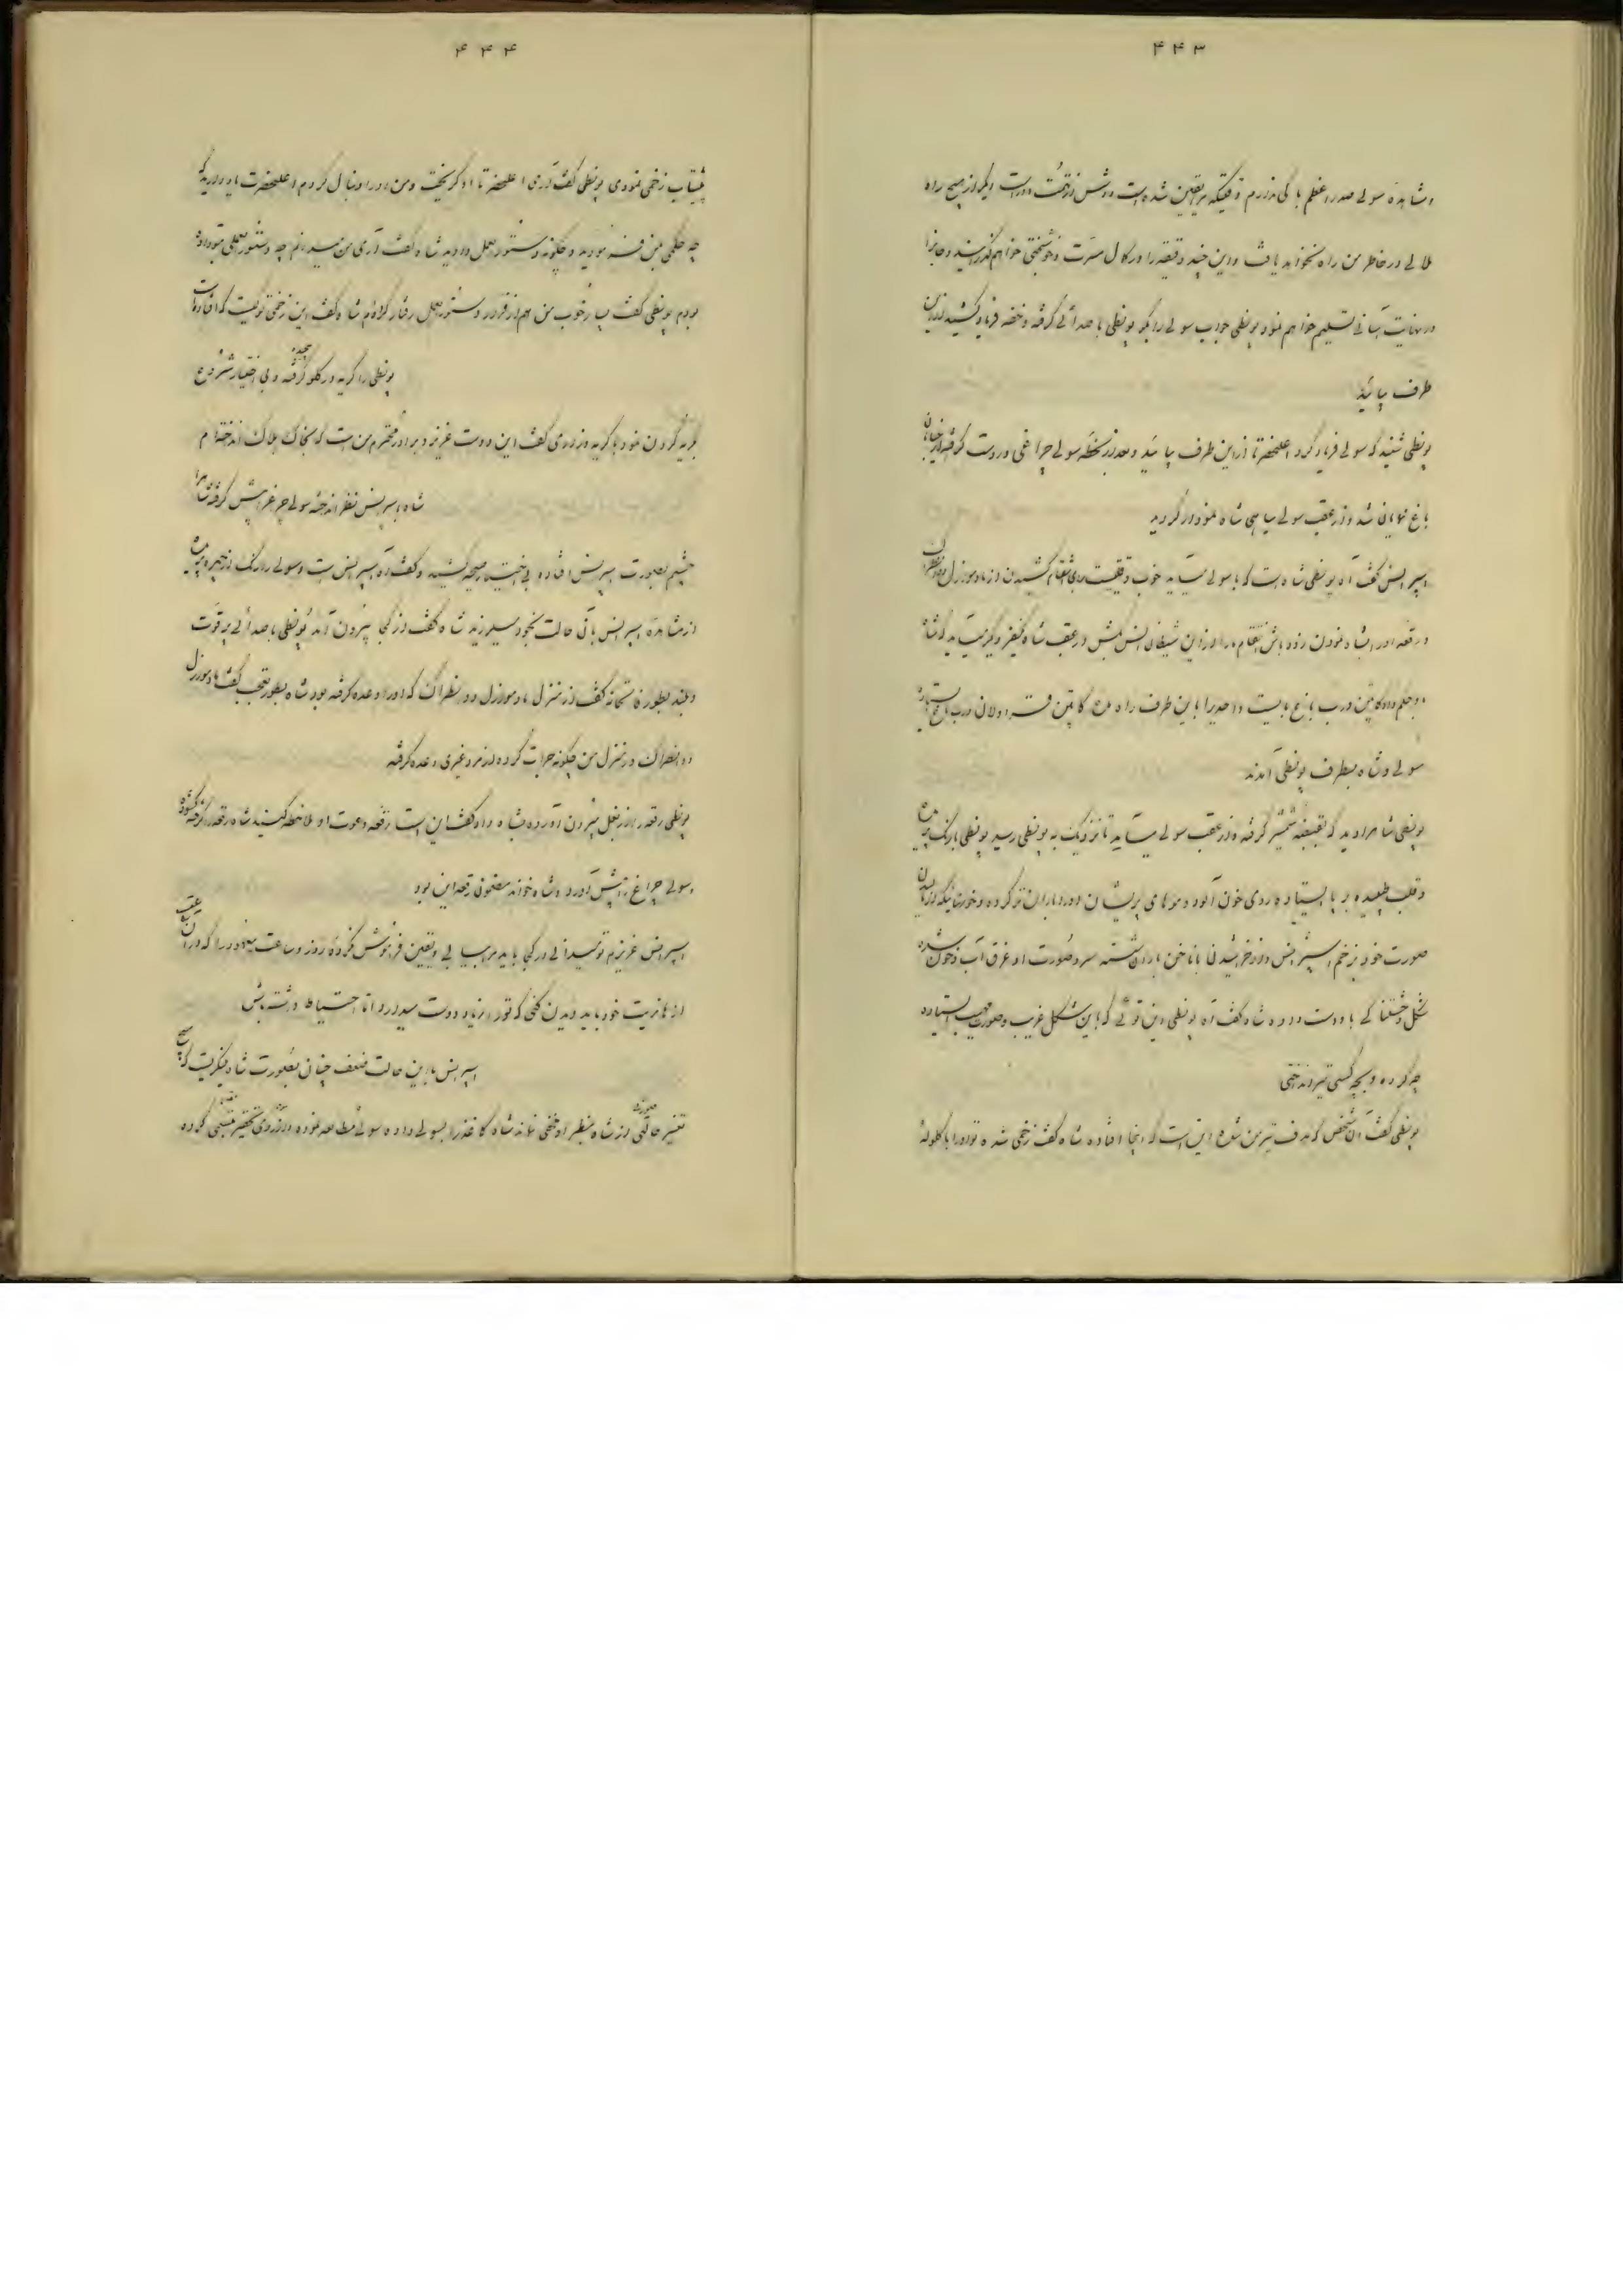 ۴۴۳
مشاهده سولی صدر اعظم باکی ندارم وقتیکه یقین شده است دوش از تخت دیگر از هیچ راه
ملالی در خاطر من راه نخواهد یافت و این چند دقیقه را در کمال مسرت و خوشبختی خواهم گذرانید و جانرا
در نهایت آسانی تسلیم خواهم نمود پونطی جواب سولی را بگو پونطی با صدائی گرفته و خفه فریاد کشید از این
طرف بیائید
پونطی شنید که سولی فریاد کرد اعلیحضرتا از این طرف بیائید و بعد از لحظه سولی چراغی در دست گرفته از خیابان
باغ نمایان شد و از عقب سولی سیاهی شاه نمودار گردید
اسپرانس گفت آه پونطی شاه است که با سولی میآید خوب وقتیست برای انتقام کشیدن از مادموازل دانطراگ
رقعه او را بشاه نمودن زود باش انتقام مرا از این شیطان انس بکش در عقب شاه نفر دیگر نیست
و حکم داد کاپیتن درب باغ بایست و احدیرا باین طرف راه مده کاپیتن قراولان درب باغ ایستاد
سولی و شاه بطرف پونطی آمدند
پونطی شاه را دید که قبضه شمشیر گرفته و از عقب سولی میآید تا نزدیک به پونطی رسید پونطی با رنگ پریده
و قلب طپیده بر پا ایستاده روی خون آلود و موهای پریشان او را باران تر کرده و خونهائیکه از مالیدن
صورت خود بزخم اسپرانس و از خراشیدن با ناخن باران شسته سر و صورت او غرق آب و خون شده
شکل وحشتناکی با و دست داده شاه گفت آه پونطی این توئی که باین شکل غریب و صورت مهیب ایستاده
چه کرده و بچه کسی تیر انداختی
پونطی گفت آن شخص که هدف تیر من شده این است که اینجا افتاده شاه گفت زخمی شده تو او را با گلوله
۴۴۴
پیشتاب زخمی نمودی پونطی گفت آری اعلیحضرتا او گریخت و من او را دنبال کردم اعلیحضرت یاد دارید که
چه حکمی بمن فرمودید و چگونه دستورالعمل دادید شاه گفت آری من میدانم چه دستورالعملی بتو داده
بودم پونطی گفت بسیار خوب من هم از قرار دستورالعمل رفتار کرده‌ام شاه گفت این زخمی کیست که افتاده است
پونطی را گریه در گلو گرفته و بی اختیار شروع
بگریه کردن نمود با گریه و زاری گفت این دوست عزیز و برادر محترم من است که بخاک هلاک انداخته‌ام
شاه با سپرانس نظر انداخته سولی چراغ را پیش گرفته شاه را
چشم بصورت اسپرانس افتاده بی اختیار صیحه کشید و گفت آه اسپرانس است و سولی را رنگ از چهره پریده
از مشاهده اسپرانس بآن حالت بخود میلرزید شاه گفت از کجا بیرون آمد پونطی با صدائی پر قوت
و بلند بطور فاتحانه گفت از منزل مادموازل دانطراگ که او را وعده گرفته بود شاه بطور تعجب گفت مادموازل
دانطراگ در منزل من چگونه جرأت کرده از مرد غیری وعده گرفته
پونطی رقعه را از بغل بیرون آورده بشاه داد گفت این است رقعه دعوت او ملاحظه کنید شاه رقعه را گرفته گشوده
سولی چراغ را پیش آورد و شاه خواند مضمون رقعه این بود
اسپرانس عزیزم تو میدانی در کجا باید مرا بیابی و یقین فراموش نکردهٔ روز و ساعت معهود را که در آن عقب
از هانریت خود باید دیدن کنی که تو را زیاد دوست میدارد اما احتیاط داشته باش
اسپرانس با این حالت ضعف چنان بصورت شاه مینگریست که هیچ
تغییر حالتی از شاه بنظر او مخفی نماند شاه کاغذ را بسولی داده سولی مطالعه نموده و از روی تحقیر تبسمی کرده